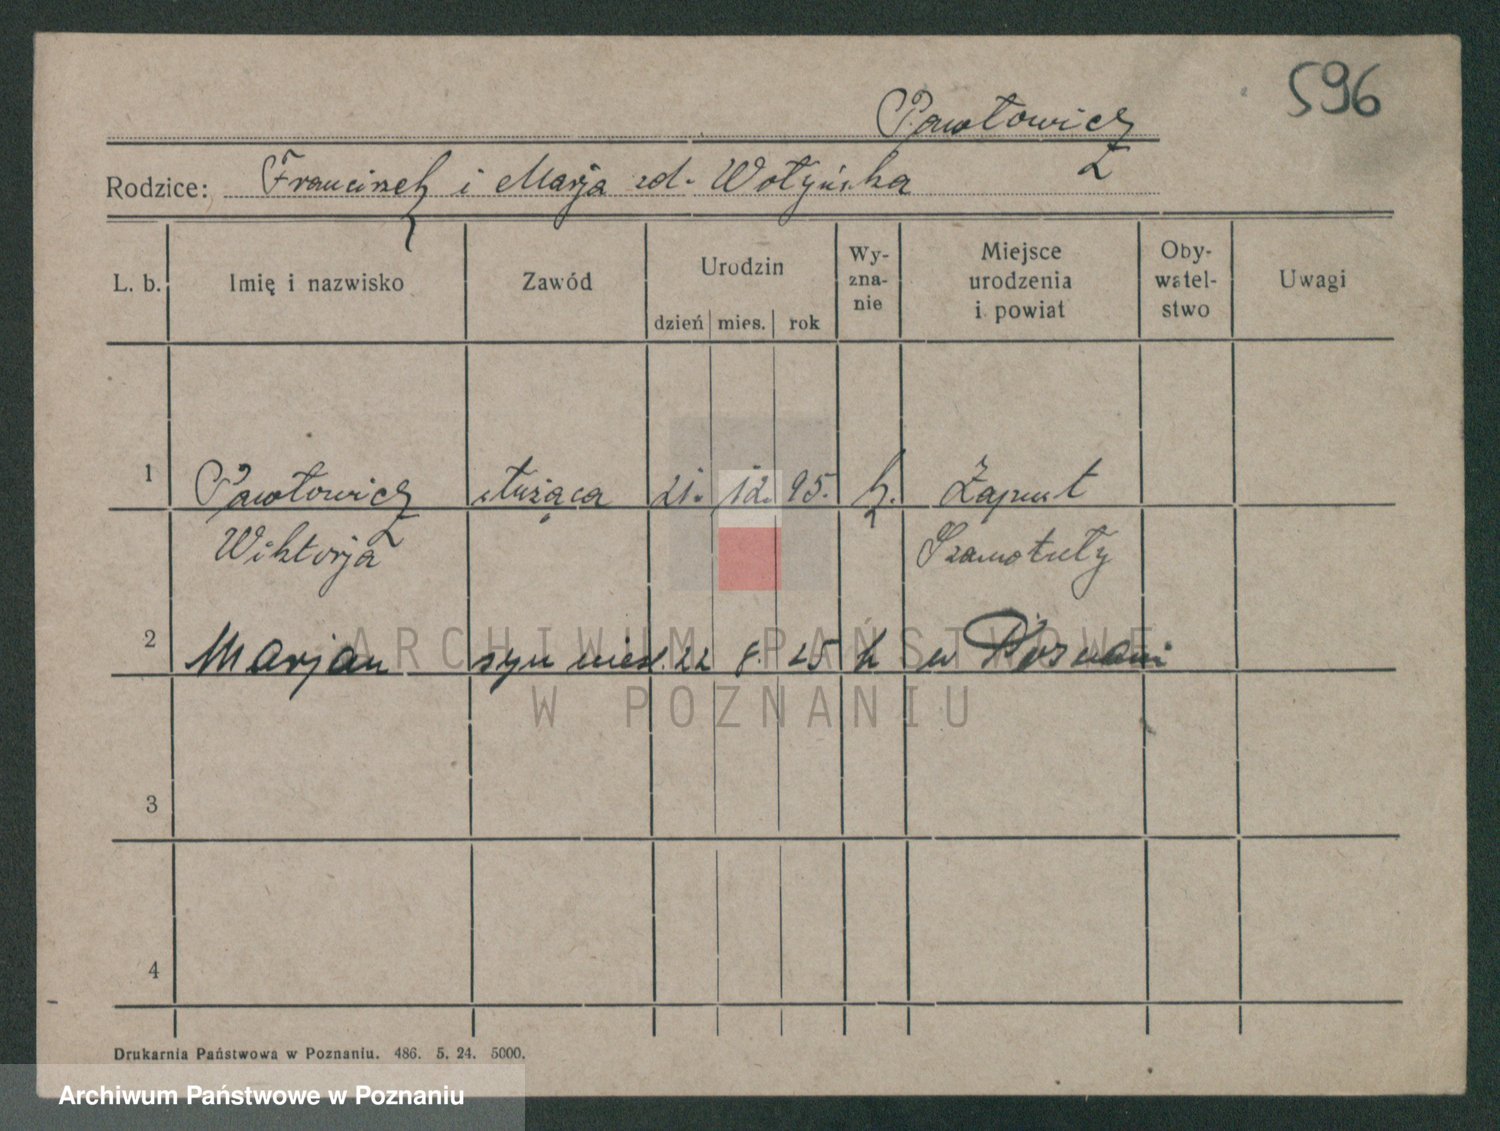 596
Pawłowicz
Rodzice: Franciszek i Marja zd. Wołyńska
L. b. Imię i nazwisko Zawód Urodzin dzień mies. rok Wy-zna-nie Miejsce urodzenia i powiat Oby-watel-stwo Uwagi
1 Pawłowicz służąca 21. 12. 95. k. Zapust
Wiktorja Szamotuły
2 Marjan syn nieśl. 22 8. 25 k w Poznani
ARCHIWUM PAŃSTWOWE
W POZNANIU
3
4
Drukarnia Państwowa w Poznaniu. 486. 5. 24. 5000.
Archiwum Państwowe w Poznaniu